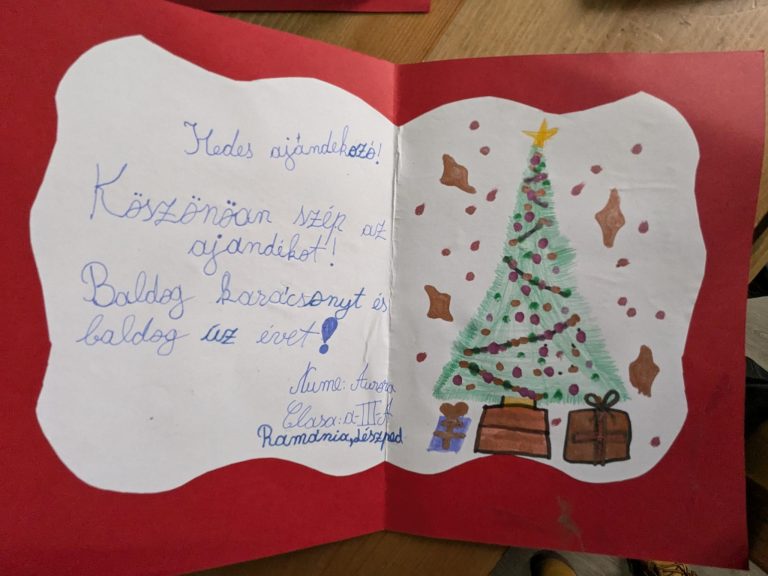 Kedes ajándekozó!
Köszönöan szép az
ajándékot!
Baldog karácsonyt és
baldog az évet!
Nume: Aurora
Clasa: a-III-A
Ramánia, Lészped